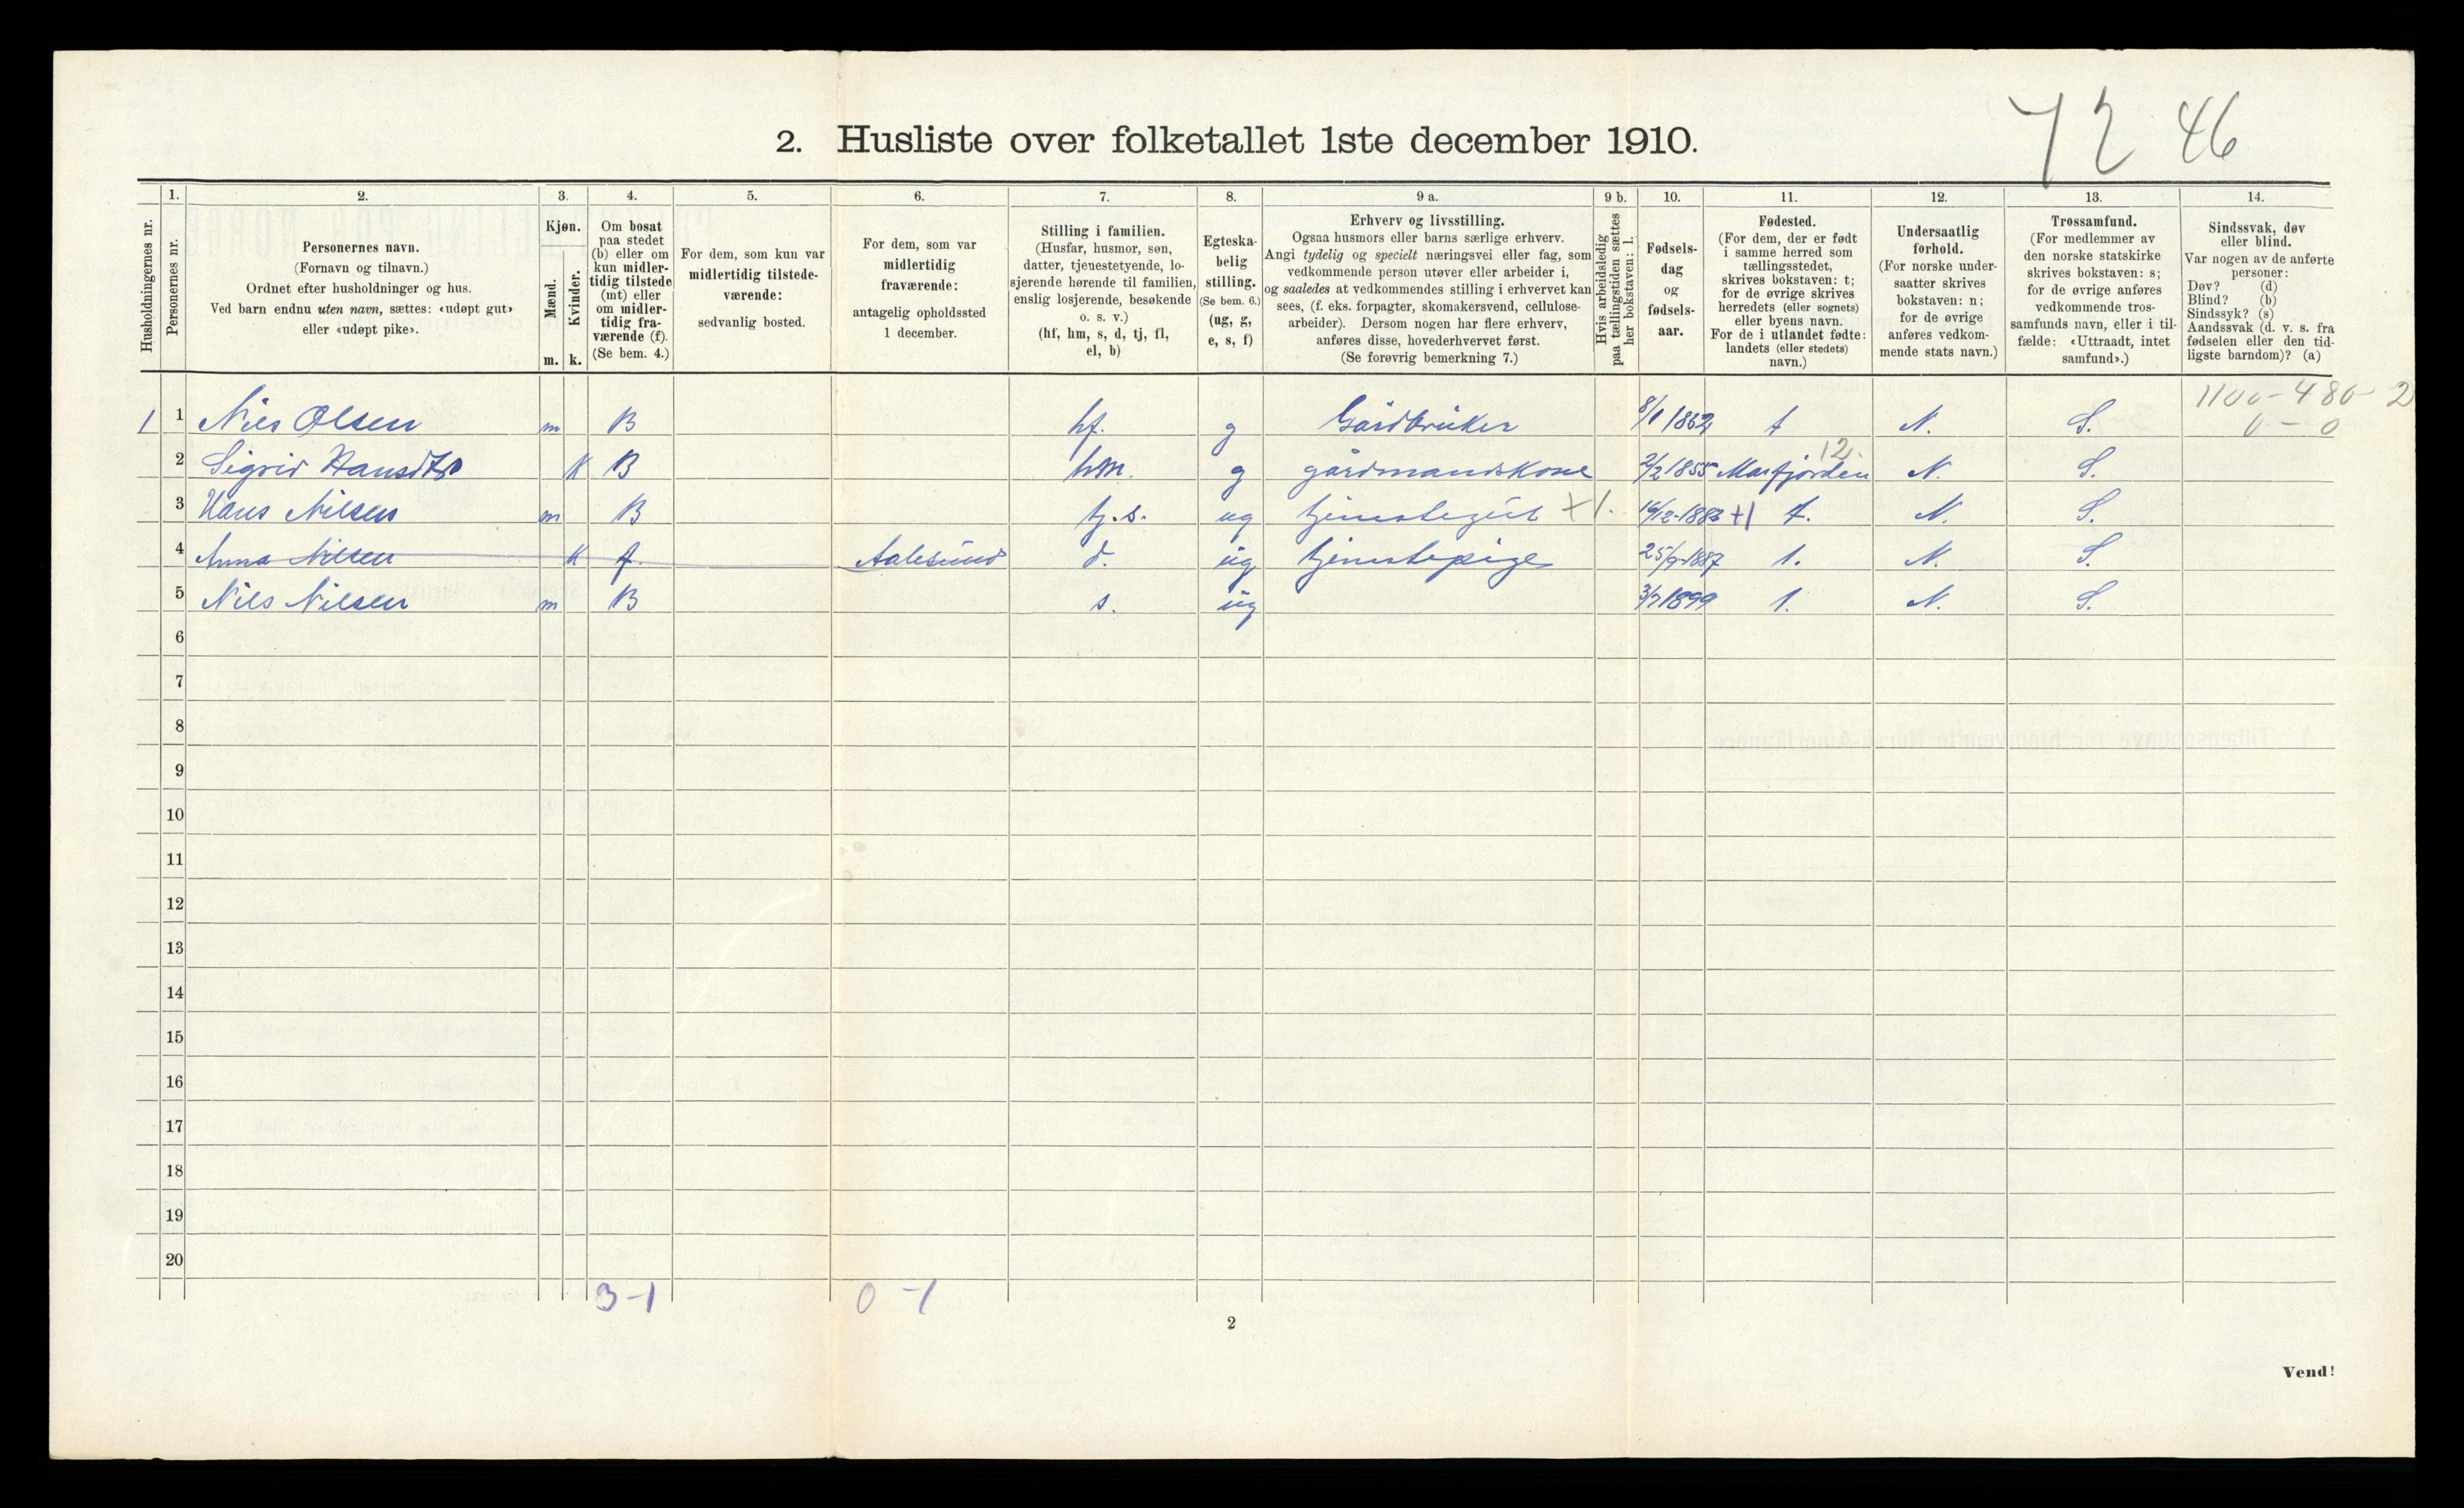 72 46
2. Husliste over folketallet 1ste december 1910.
Husholdningernes nr.
1.
Personernes nr.
2.
Personernes navn.
(Fornavn og tilnavn.)
Ordnet efter husholdninger og hus.
Ved barn endnu uten navn, sættes: «udøpt gut»
eller «udøpt pike».
3.
Kjøn.
Mænd.
Kvinder.
m. k.
4.
Om bosat
paa stedet
(b) eller om
kun midler-
tidig tilstede
(mt) eller
om midler-
tidig fra-
værende (f).
(Se bem. 4.)
5.
For dem, som kun var
midlertidig tilstede-
værende:
sedvanlig bosted.
6.
For dem, som var
midlertidig
fraværende:
antagelig opholdssted
1 december.
7.
Stilling i familien.
(Husfar, husmor, søn,
datter, tjenestetyende, lo-
sjerende hørende til familien,
enslig losjerende, besøkende
o. s. v.)
(hf, hm, s, d, tj, fl,
el, b)
8.
Egteska-
belig
stilling.
(Se bem. 6.)
(ug, g,
e, s, f)
9 a.
Erhverv og livsstilling.
Ogsaa husmors eller barns særlige erhverv.
Angi tydelig og specielt næringsvei eller fag, som
vedkommende person utøver eller arbeider i,
og saaledes at vedkommendes stilling i erhvervet kan
sees, (f. eks. forpagter, skomakersvend, cellulose-
arbeider). Dersom nogen har flere erhverv,
anføres disse, hovederhvervet først.
(Se forøvrig bemerkning 7.)
9 b.
Hvis arbeidsledig
paa tællingstiden sættes
her bokstaven: l.
10.
Fødsels-
dag
og
fødsels-
aar.
11.
Fødested.
(For dem, der er født
i samme herred som
tællingsstedet,
skrives bokstaven: t;
for de øvrige skrives
herredets (eller sognets)
eller byens navn.
For de i utlandet fødte:
landets (eller stedets)
navn.)
12.
Undersaatlig
forhold.
(For norske under-
saatter skrives
bokstaven: n;
for de øvrige
anføres vedkom-
mende stats navn.)
13.
Trossamfund.
(For medlemmer av
den norske statskirke
skrives bokstaven: s;
for de øvrige anføres
vedkommende tros-
samfunds navn, eller i til-
fælde: «Uttraadt, intet
samfund».)
14.
Sindssvak, døv
eller blind.
Var nogen av de anførte
personer:
Døv? (d)
Blind? (b)
Sindssyk? (s)
Aandssvak (d. v. s. fra
fødselen eller den tid-
ligste barndom)? (a)
1100-480-2
1 1 Nils Olsen m B hf. g Gårdbruker 1862 t N. S. 0-0
12.
2 Sigrid Hansdtr K B hm. g gårdmandskone 2/2 1855 Masfjorden N. S.
3 Hans Nilsen m B tj. s. ug tjenstegut +1. 1883 +1 t. N. S.
4 Anna Nilsen K f. Aalesund d. ug tjenstepige 1887 t. N. S.
5 Nils Nilsen m B s. ug 3/7 1899 t. N. S.
6
7
8
9
10
11
12
13
14
15
16
17
18
19
20
3-1 0-1
2
Vend!